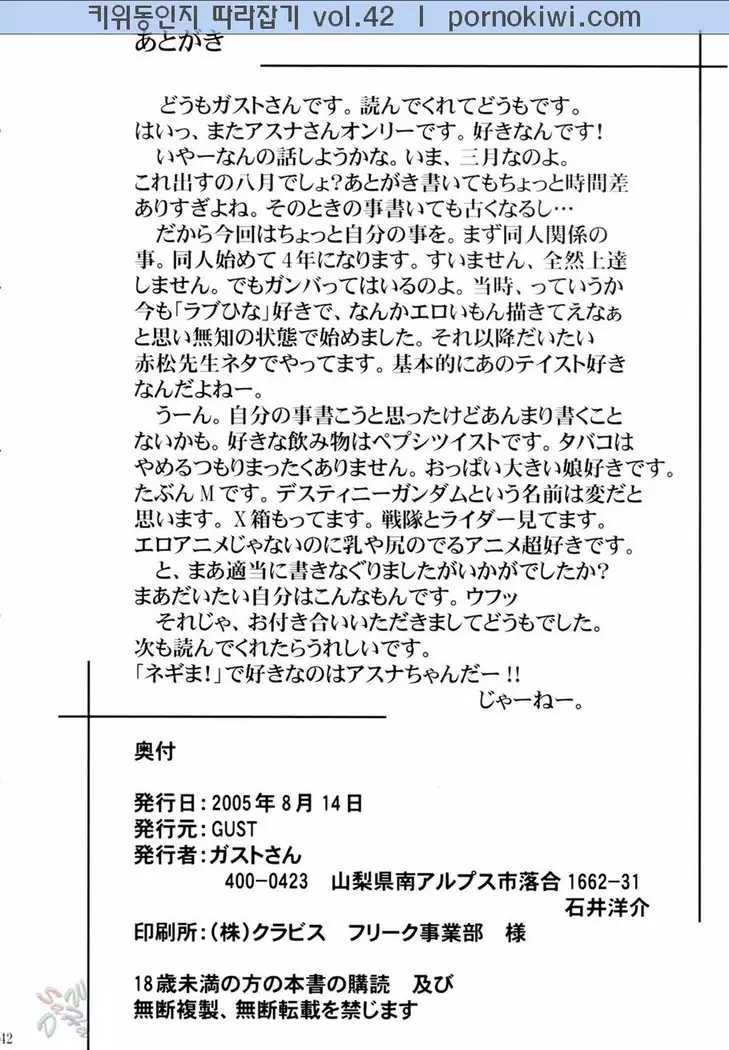 키위동인지 따라잡기 vol.42 l pornokiwi.com
あとがき
どうもガストさんです。読んでくれてどうもです。
はいっ、またアスナさんオンリーです。好きなんです!
いやーなんの話しようかな。いま、三月なのよ。
これ出すの八月でしょ?あとがき書いてもちょっと時間差
ありすぎよね。そのときの事書いても古くなるし…
だから今回はちょっと自分の事を。まず同人関係の
事。同人始めて4年になります。すいません、全然上達
しません。でもガンバってはいるのよ。当時、っていうか
今も「ラブひな」好きで、なんかエロいもん描きてえなぁ
と思い無知の状態で始めました。それ以降だいたい
赤松先生ネタでやってます。基本的にあのテイスト好き
なんだよねー。
うーん。自分の事書こうと思ったけどあんまり書くこと
ないかも。好きな飲み物はペプシツイストです。タバコは
やめるつもりまったくありません。おっぱい大きい娘好きです。
たぶんMです。デスティニーガンダムという名前は変だと
思います。X箱もってます。戦隊とライダー見てます。
エロアニメじゃないのに乳や尻のでるアニメ超好きです。
と、まあ適当に書きなぐりましたがいかがでしたか?
まあだいたい自分はこんなもんです。ウフッ
それじゃ、お付き合いいただきましてどうもでした。
次も読んでくれたらうれしいです。
「ネギま!」で好きなのはアスナちゃんだー!!
じゃーねー。
奥付
発行日:2005年8月14日
発行元:GUST
発行者:ガストさん
400-0423 山梨県南アルプス市落合1662-31
石井洋介
印刷所:(株)クラビス フリーク事業部 様
18歳未満の方の本書の購読 及び
無断複製、無断転載を禁じます
42